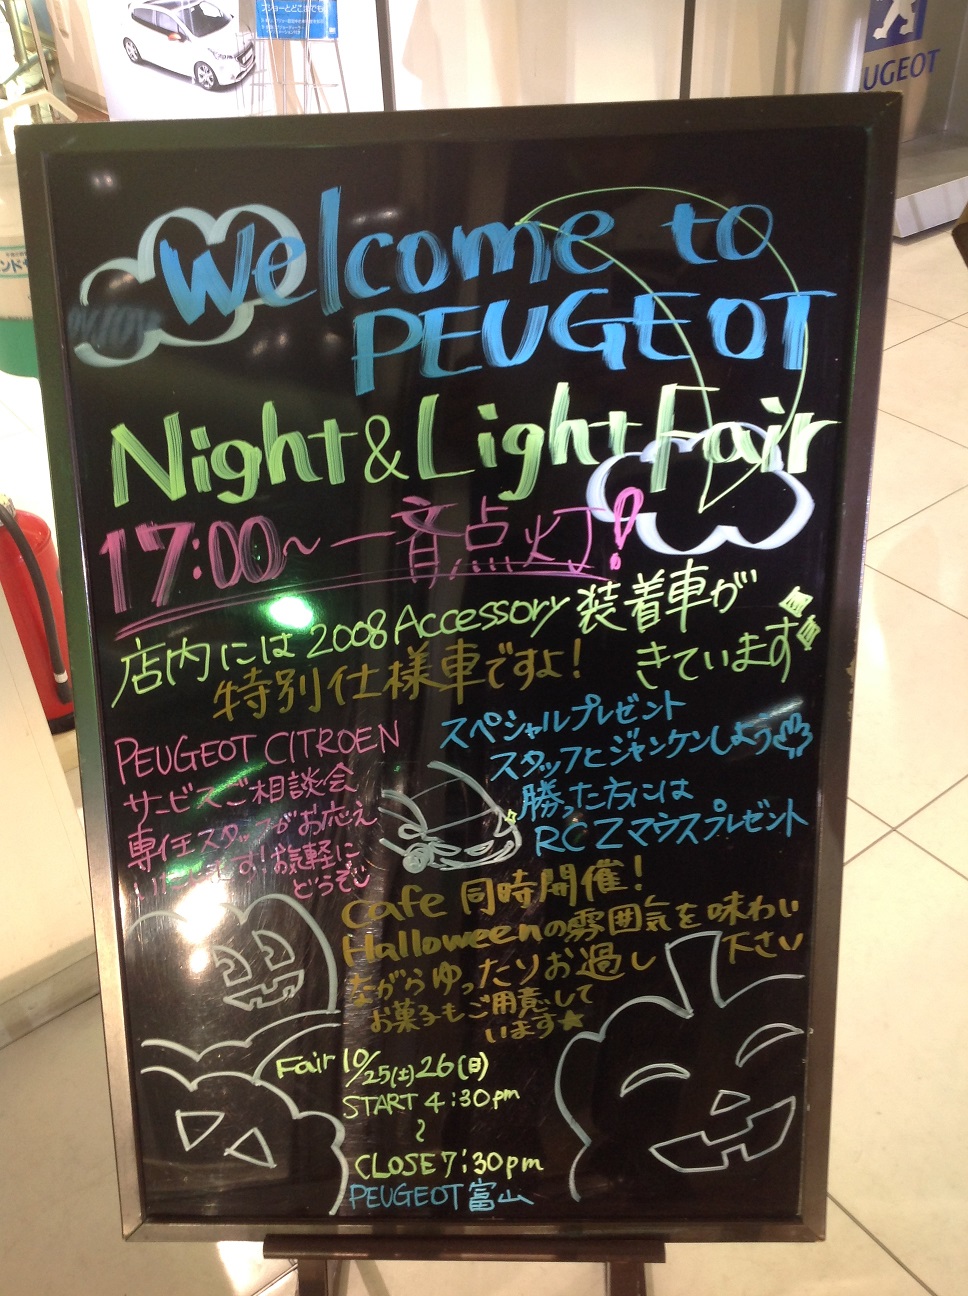 プジョーとどこまでも
UGEOT
ENJOY
Welcome to
PEUGEOT
Night&Light Fair
17:00～一斉点灯!
店内には2008Accessory装着車が
きています
特別仕様車ですよ!
PEUGEOT CITROEN
サービスご相談会
専任スタッフがお応え
お気軽に
どうぞ
スペシャルプレゼント
スタッフとジャンケンしよう
勝った方には
RCZマウスプレゼント
Cafe 同時開催!
Halloweenの雰囲気を味わい
ながらゆったりお過し下さい
お菓子もご用意して
います★
Fair 10/25(土)26(日)
START 4:30pm
~
CLOSE 7:30pm
PEUGEOT富山